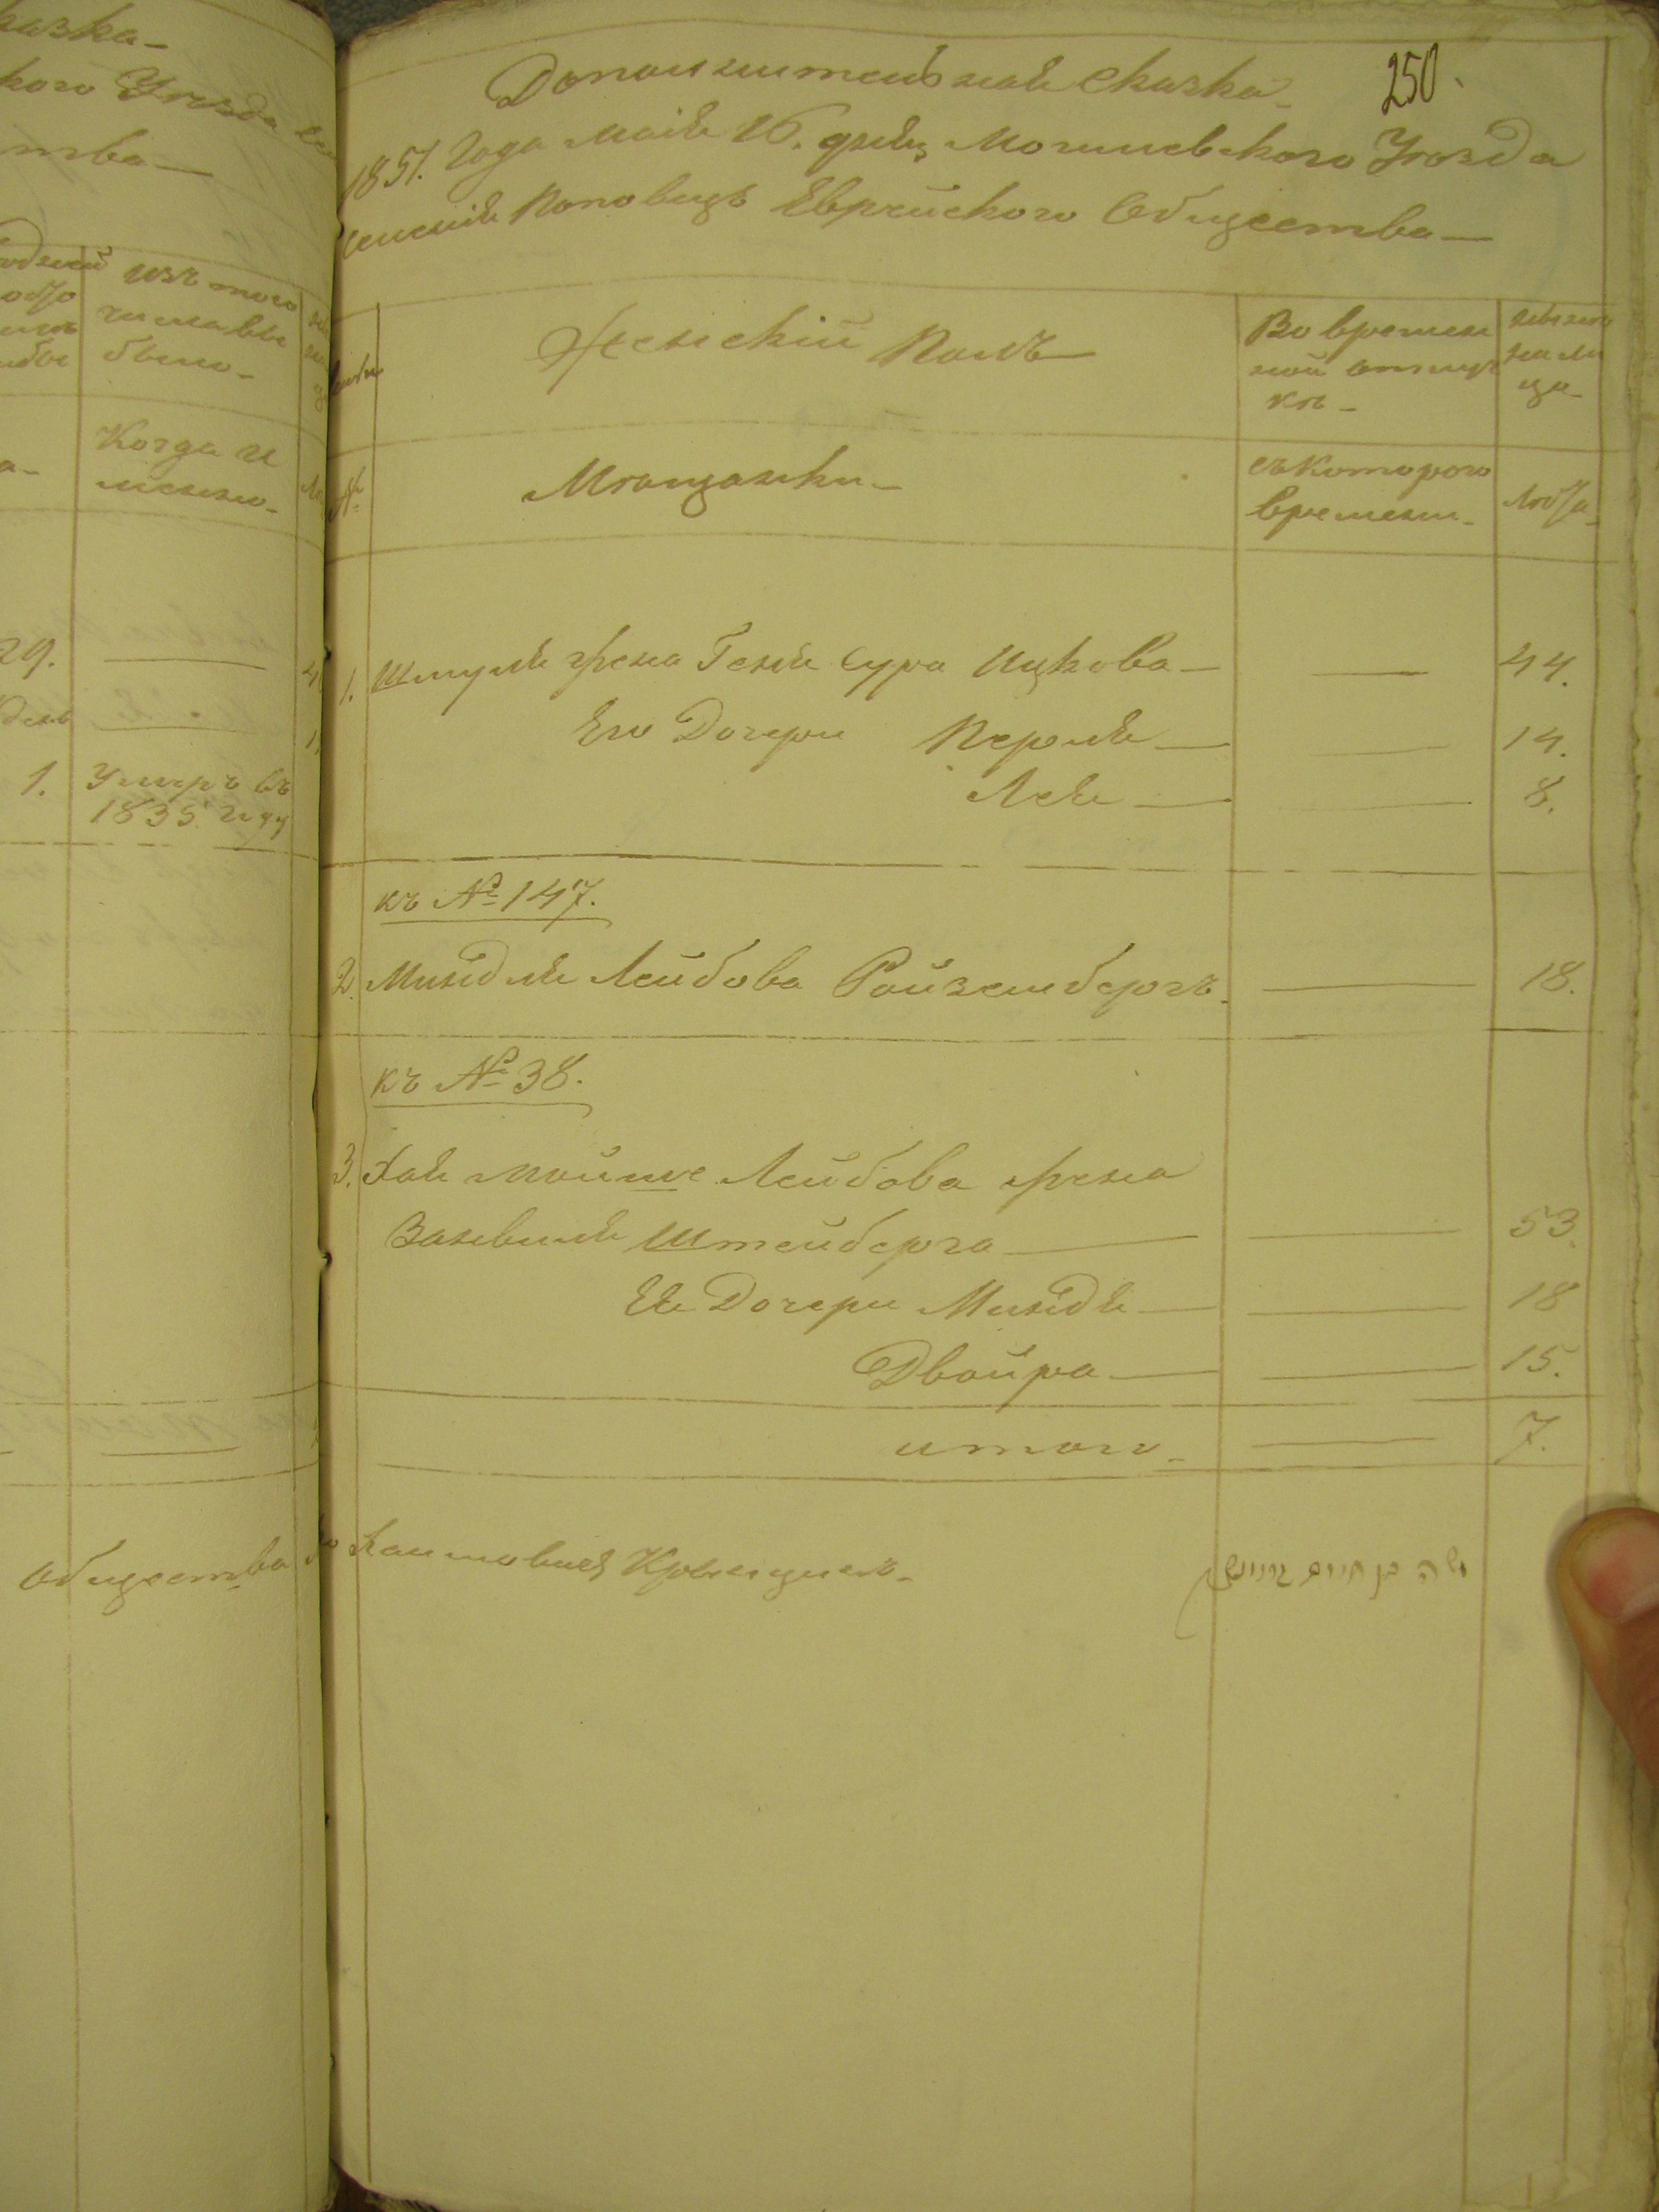 казка
кого Уезда
тва
изъ того
числа вы
было
Когда и
именно
29.
1.
Умеръ въ
1835 году
общества
Дополнительная Сказка
250.
1851. Года Маія 16. дня, Могилевского Уезда
селенія Поповецъ Еврейского Общества
Женскій Полъ
Во времен
ной отлуч
кѣ
нынѣ
на ли
цо
№
Мѣщанки
съ которого
времени
Лѣта
1. Шмуля жена Геня Сура Ицкова 44.
Его Дочери Перля 14.
Лея 8.
къ № 147.
2. Миндля Лейбова Ройзенбергъ 18.
къ № 38.
3. Хая Мойше Лейбова жена
Занвиля Штейберга 53.
Ея Дочери Миндя 18
Двойра 15.
итого 7.